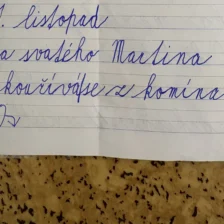 . listopad
a svatého Martina
kouřívá se z komína